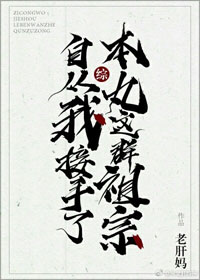 ZICONGWO
JIESHOU
LEBENWANZHE
QUNZUZONG
综
自从我接手了
本丸这群祖宗
作品
老肝妈